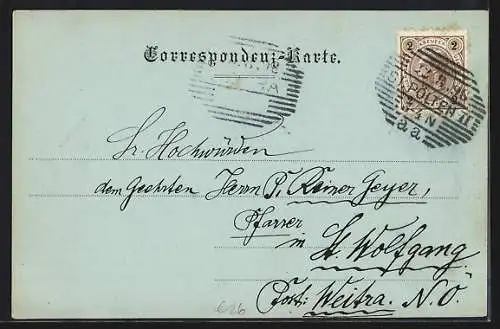 2 KREUZER 2
Correspondenz-Karte.
ST. PÖLTEN
Sr. Hochwürden
dem Geehrten Herrn P. Rainer Geyer,
Pfarrer
in St. Wolfgang
Post: Weitra. N.Ö.